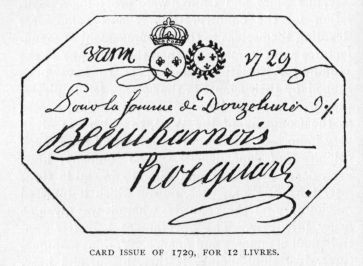 1729
Pour la somme de Douze livres
Beauharnois
hocquart
CARD ISSUE OF 1729, FOR 12 LIVRES.